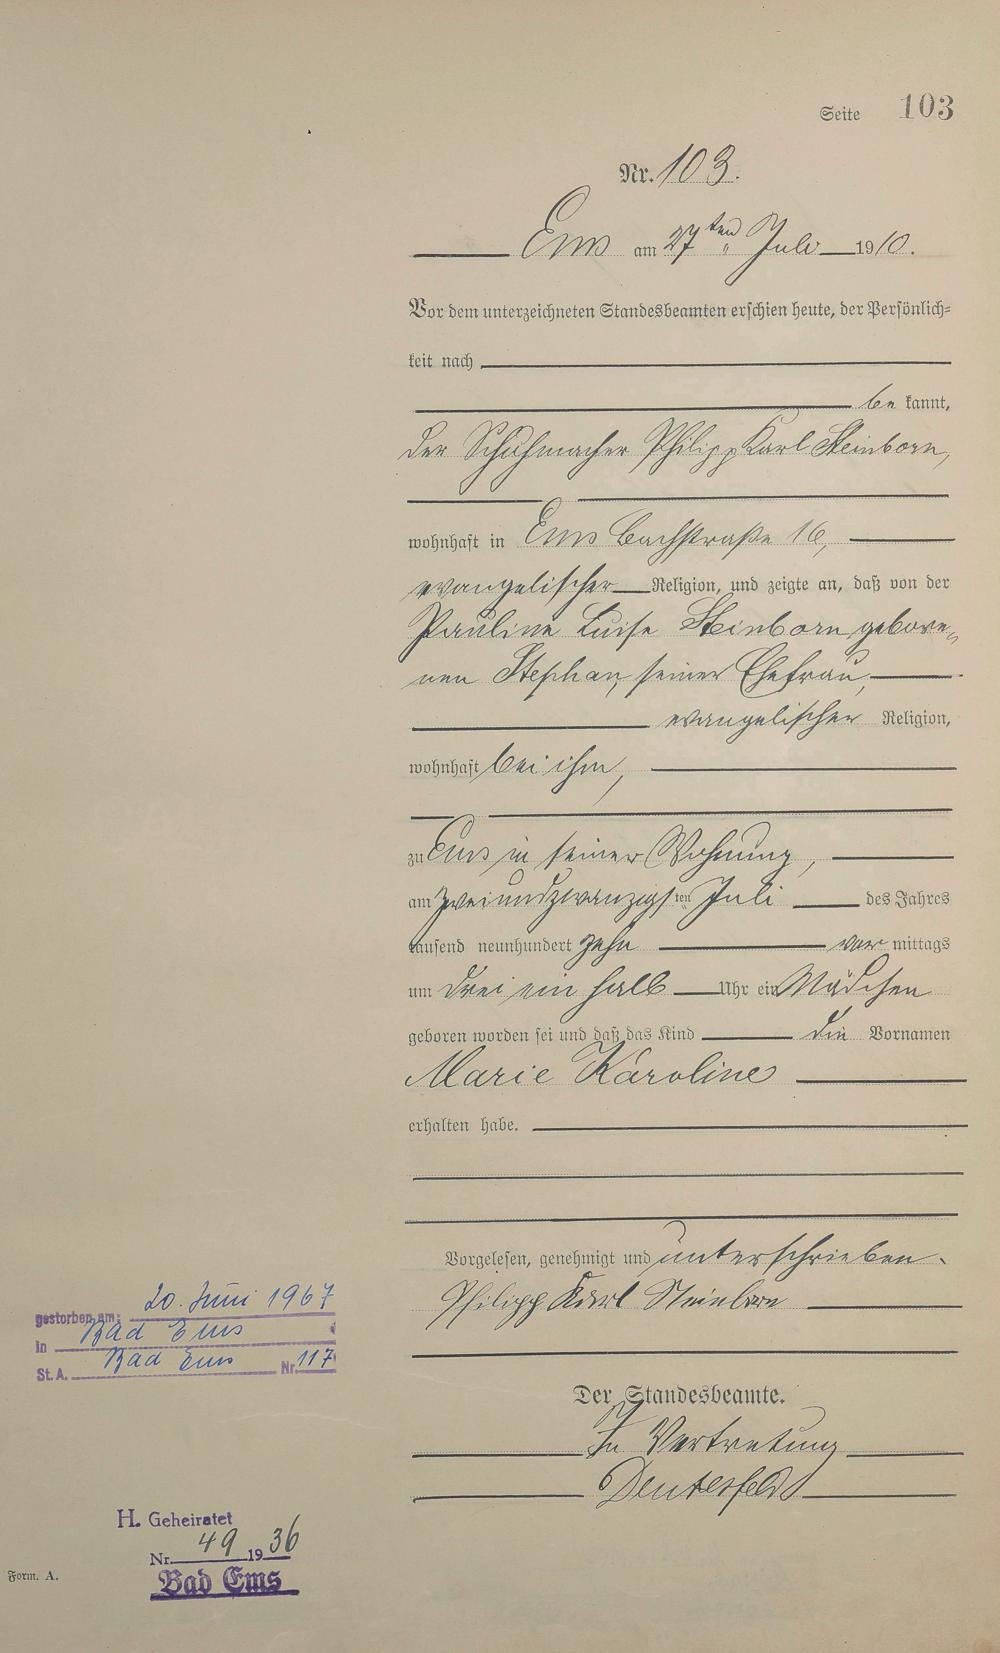 Seite 103
Nr. 103.
Ems am 27ten Juli 1910.
Vor dem unterzeichneten Standesbeamten erschien heute, der Persönlich=
keit nach
be kannt,
der Schuhmacher Philipp Karl Steinborn,
wohnhaft in Ems Bachstraße 16,
evangelischer Religion, und zeigte an, daß von der
Pauline Luise Steinborn gebore=
nen Stephan, seiner Ehefrau,
evangelischer Religion,
wohnhaft bei ihm,
zu Ems in seiner Wohnung,
am zweiundzwanzigsten Juli des Jahres
tausend neunhundert zehn vor mittags
um drei ein halb Uhr ein Mädchen
geboren worden sei und daß das Kind die Vornamen
Marie Karoline
erhalten habe.
Vorgelesen, genehmigt und unterschrieben.
Philipp Karl Steinborn
Der Standesbeamte.
In Vertretung
gestorben am: 20. Juni 1967
in Bad Ems
St.A. Bad Ems Nr. 117
H. Geheiratet
Nr. 49 1936
Bad Ems
Form. A.